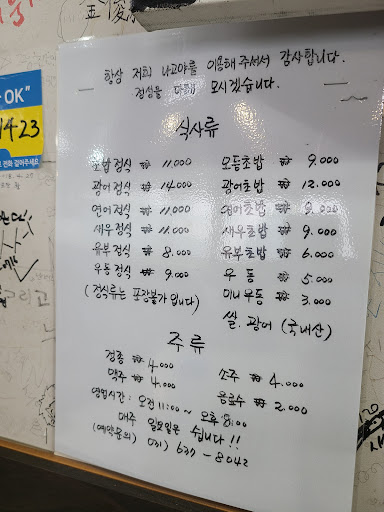 金俊
OK"
1423
전화 걸어주세요
항상 저희 나고야를 이용해 주셔서 감사합니다.
정성을 다해 모시겠습니다.
식사류
초밥정식 ₩ 11.000
모듬초밥 ₩ 9.000
광어정식 ₩ 14.000
광어초밥 ₩ 12.000
연어정식 ₩ 11.000
연어초밥 ₩ 9.000
새우정식 ₩ 11.000
새우초밥 ₩ 9.000
유부정식 ₩ 8.000
유부초밥 ₩ 6.000
우동정식 ₩ 9.000
우동 ₩ 5.000
(정식류는 포장불가입니다)
미니우동 ₩ 3.000
쌀, 광어 (국내산)
주류
정종 ₩ 4.000
소주 ₩ 4.000
맥주 ₩ 4.000
음료수 ₩ 2.000
영업시간: 오전 11:00 ~ 오후 8:00
매주 일요일은 쉽니다!!
(예약문의) 031) 637-8042
그리고